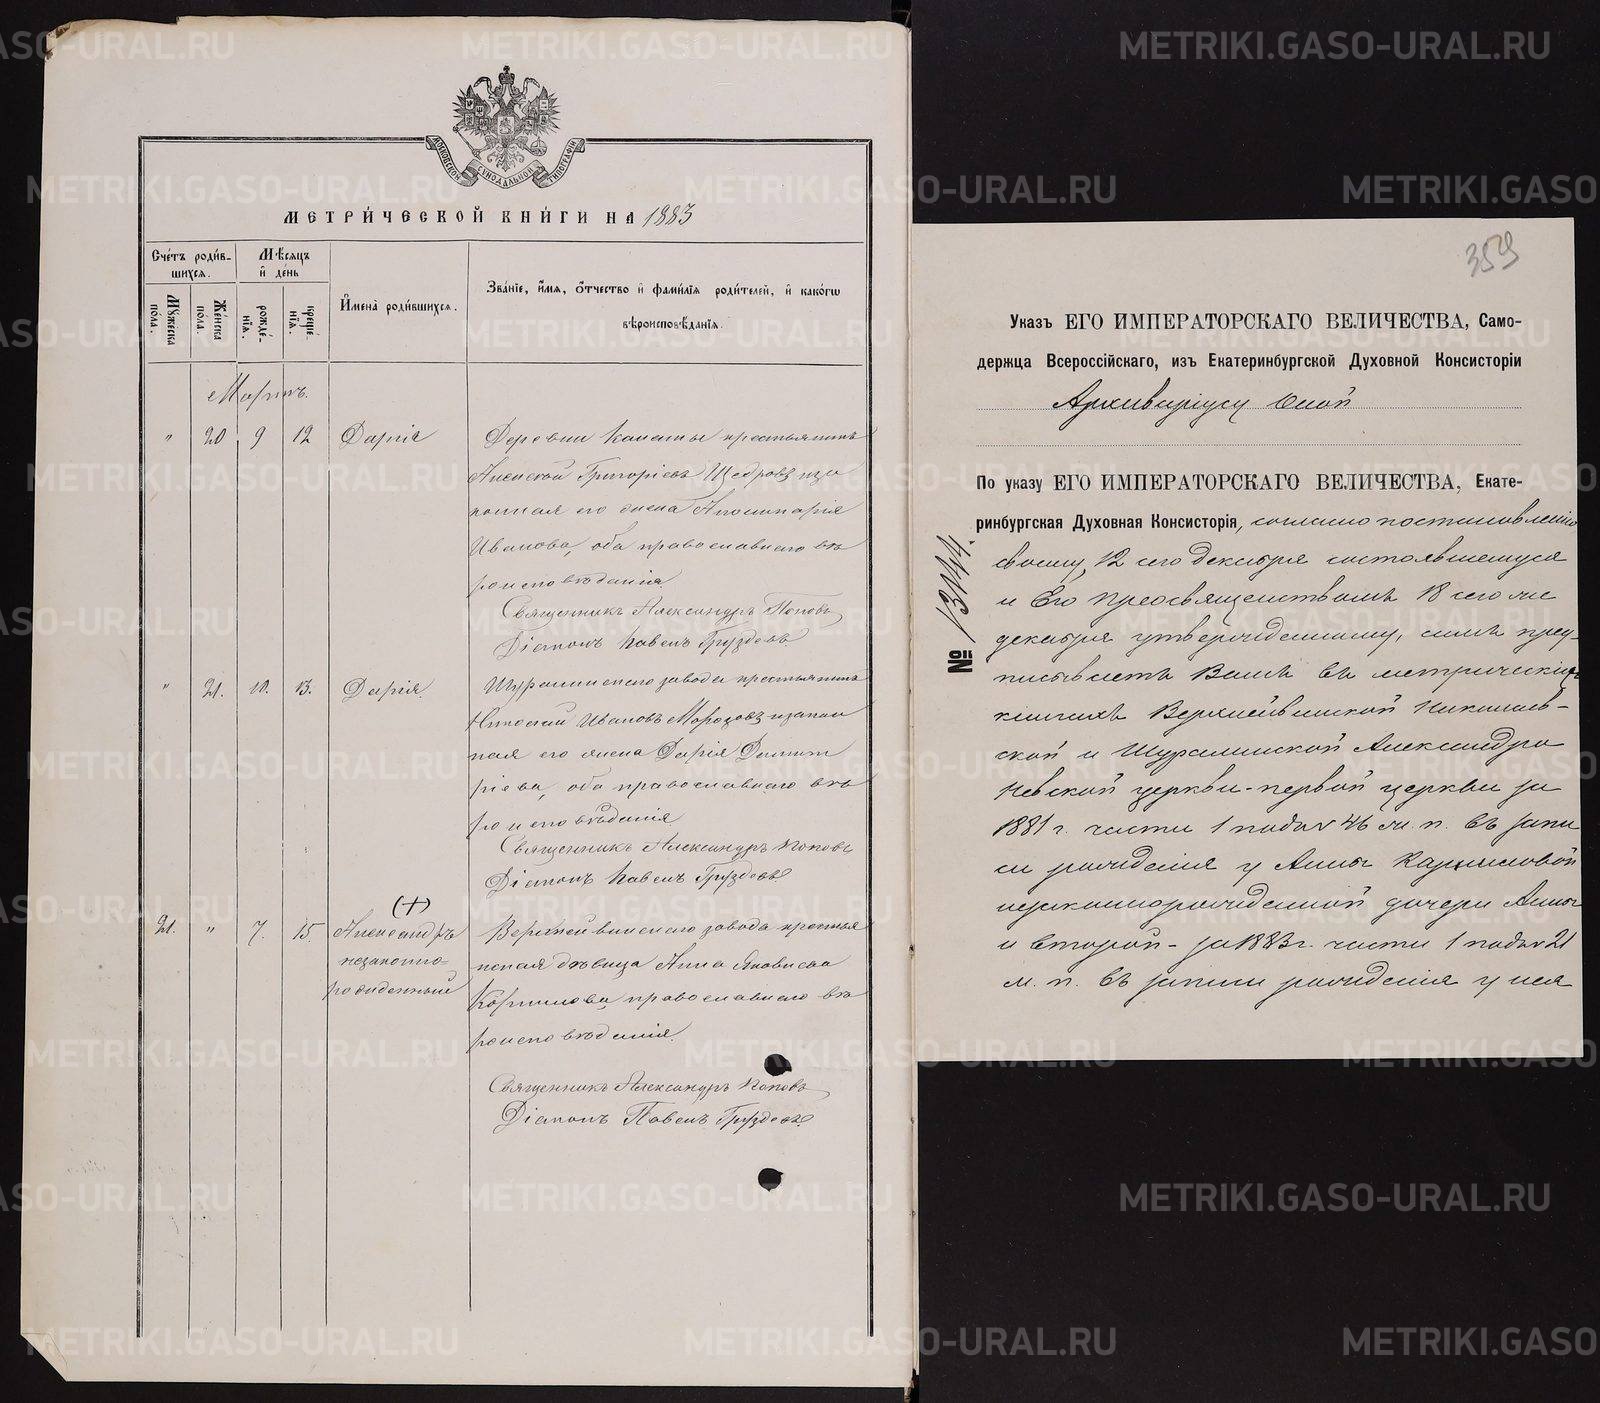 МОСКОВСКОЙ СУНОДАЛЬНОЙ ТИПОГРАФІИ
МЕТРИ́ЧЕСКОЙ КНИ́ГИ НА 1883
Сче́тъ роди́в-
шихся.
Мѣ́сяцъ
и҆ де́нь
Мꙋ́жеска
по́ла.
Же́нска
по́ла.
рожде́-
нїѧ.
креще́-
нїѧ.
И҆мена̀ роди́вшихся.
Зва́нїе, и҆́мѧ, ѻ҆́тчество и҆ фами́лїѧ роди́телей, и҆ како́гѡ
вѣроисповѣ́данїѧ.
Мартъ.
" 20 9 12 Дарія
Деревни Конаты крестьянинъ
Алексѣй Григоріевъ Щедровъ и за
конная его жена Аполинарія
Иванова, оба православнаго вѣ
роисповѣданія
Священникъ Александръ Поповъ
Діаконъ Павелъ Груздевъ
" 21. 10. 13. Дарія.
Шуралинскаго завода крестьянинъ
Николай Ивановъ Морозовъ и закон
ная его жена Дарія Димит
ріева, оба православнаго вѣ
роисповѣданія
Священникъ Александръ Поповъ
Діаконъ Павелъ Груздевъ
(+)
21. " 7. 15. Александръ
незаконно-
рожденный
Верхнейвинскаго завода крестья
нская дѣвица Анна Яковлева
Кормилова, православнаго вѣ
роисповѣданія.
Священникъ Александръ Поповъ
Діаконъ Павелъ Груздевъ
359
Указъ ЕГО ИМПЕРАТОРСКАГО ВЕЛИЧЕСТВА, Само-
держца Всероссійскаго, изъ Екатеринбургской Духовной Консисторіи
Архиваріусу Оной
По указу ЕГО ИМПЕРАТОРСКАГО ВЕЛИЧЕСТВА, Екате-
ринбургская Духовная Консисторія, согласно постановленію
своему, 12 сего Декабря состоявшемуся
и Его Преосвященствомъ 18 сего же
декабря утвержденному, симъ пред-
писываетъ Вамъ въ метрическихъ
книгахъ Верхнейвинской Николаев-
ской и Шуралинской Александро
Невской церкви - первой церкви за
1881 г. части 1 подъ № 46 ж. п. въ запи
си рожденія у Анны Кормиловой
незаконнорожденной дочери Анны
и второй - за 1883 г. части 1 подъ № 21
м. п. въ записи рожденія у нея
№ 13144.
METRIKI.GASO-URAL.RU